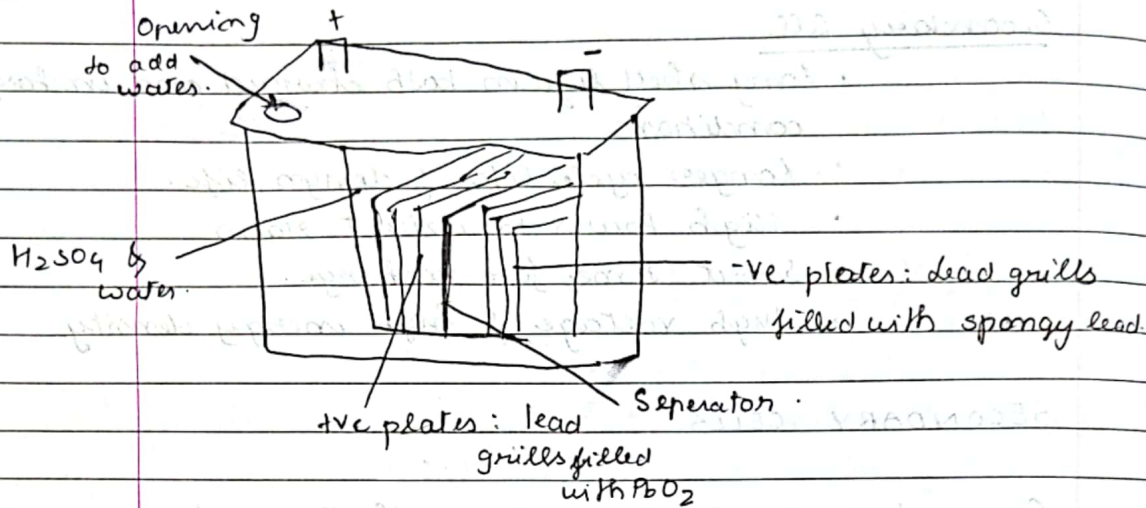 Opening
to add
water.
+
-
H2SO4 &
water.
-ve plates: Lead grills
filled with spongy lead.
Seperator.
+ve plates: lead
grills filled
with PbO2